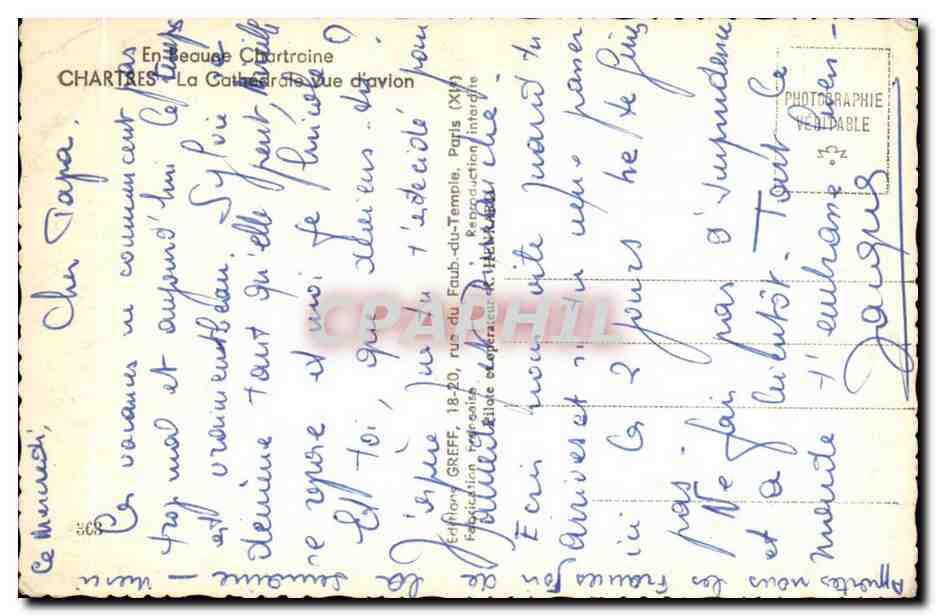 En Beauce Chartraine
CHARTRES - La Cathédrale vue d'avion
PHOTOGRAPHIE
VÉRITABLE
868
Editions GREFF, 18-20, rue du Faub.-du-Temple, Paris (XI°)
Fabrication française - Reproduction interdite
Pilote et opérateur R. HENRARD
CPARHIL
Ce Mercredi,
Cher Papa,
Les vacances ne commencent pas
trop mal et aujourd'hui le temps
est vraiment beau. Sylvie
démine tant qu'elle peut,
se repose et moi je
Et toi, que deviens-tu ?
J'espère que tu t'es décidé pour
Ecris nous vite quand tu
arrives et si tu veux passer
ici les 2 jours he fêtes
pas.
Ne fais pas d'imprudence
et à bientôt. Tout le
monde t'embrasse bien -
Jacques
Apportes nous les de la semaine - merci